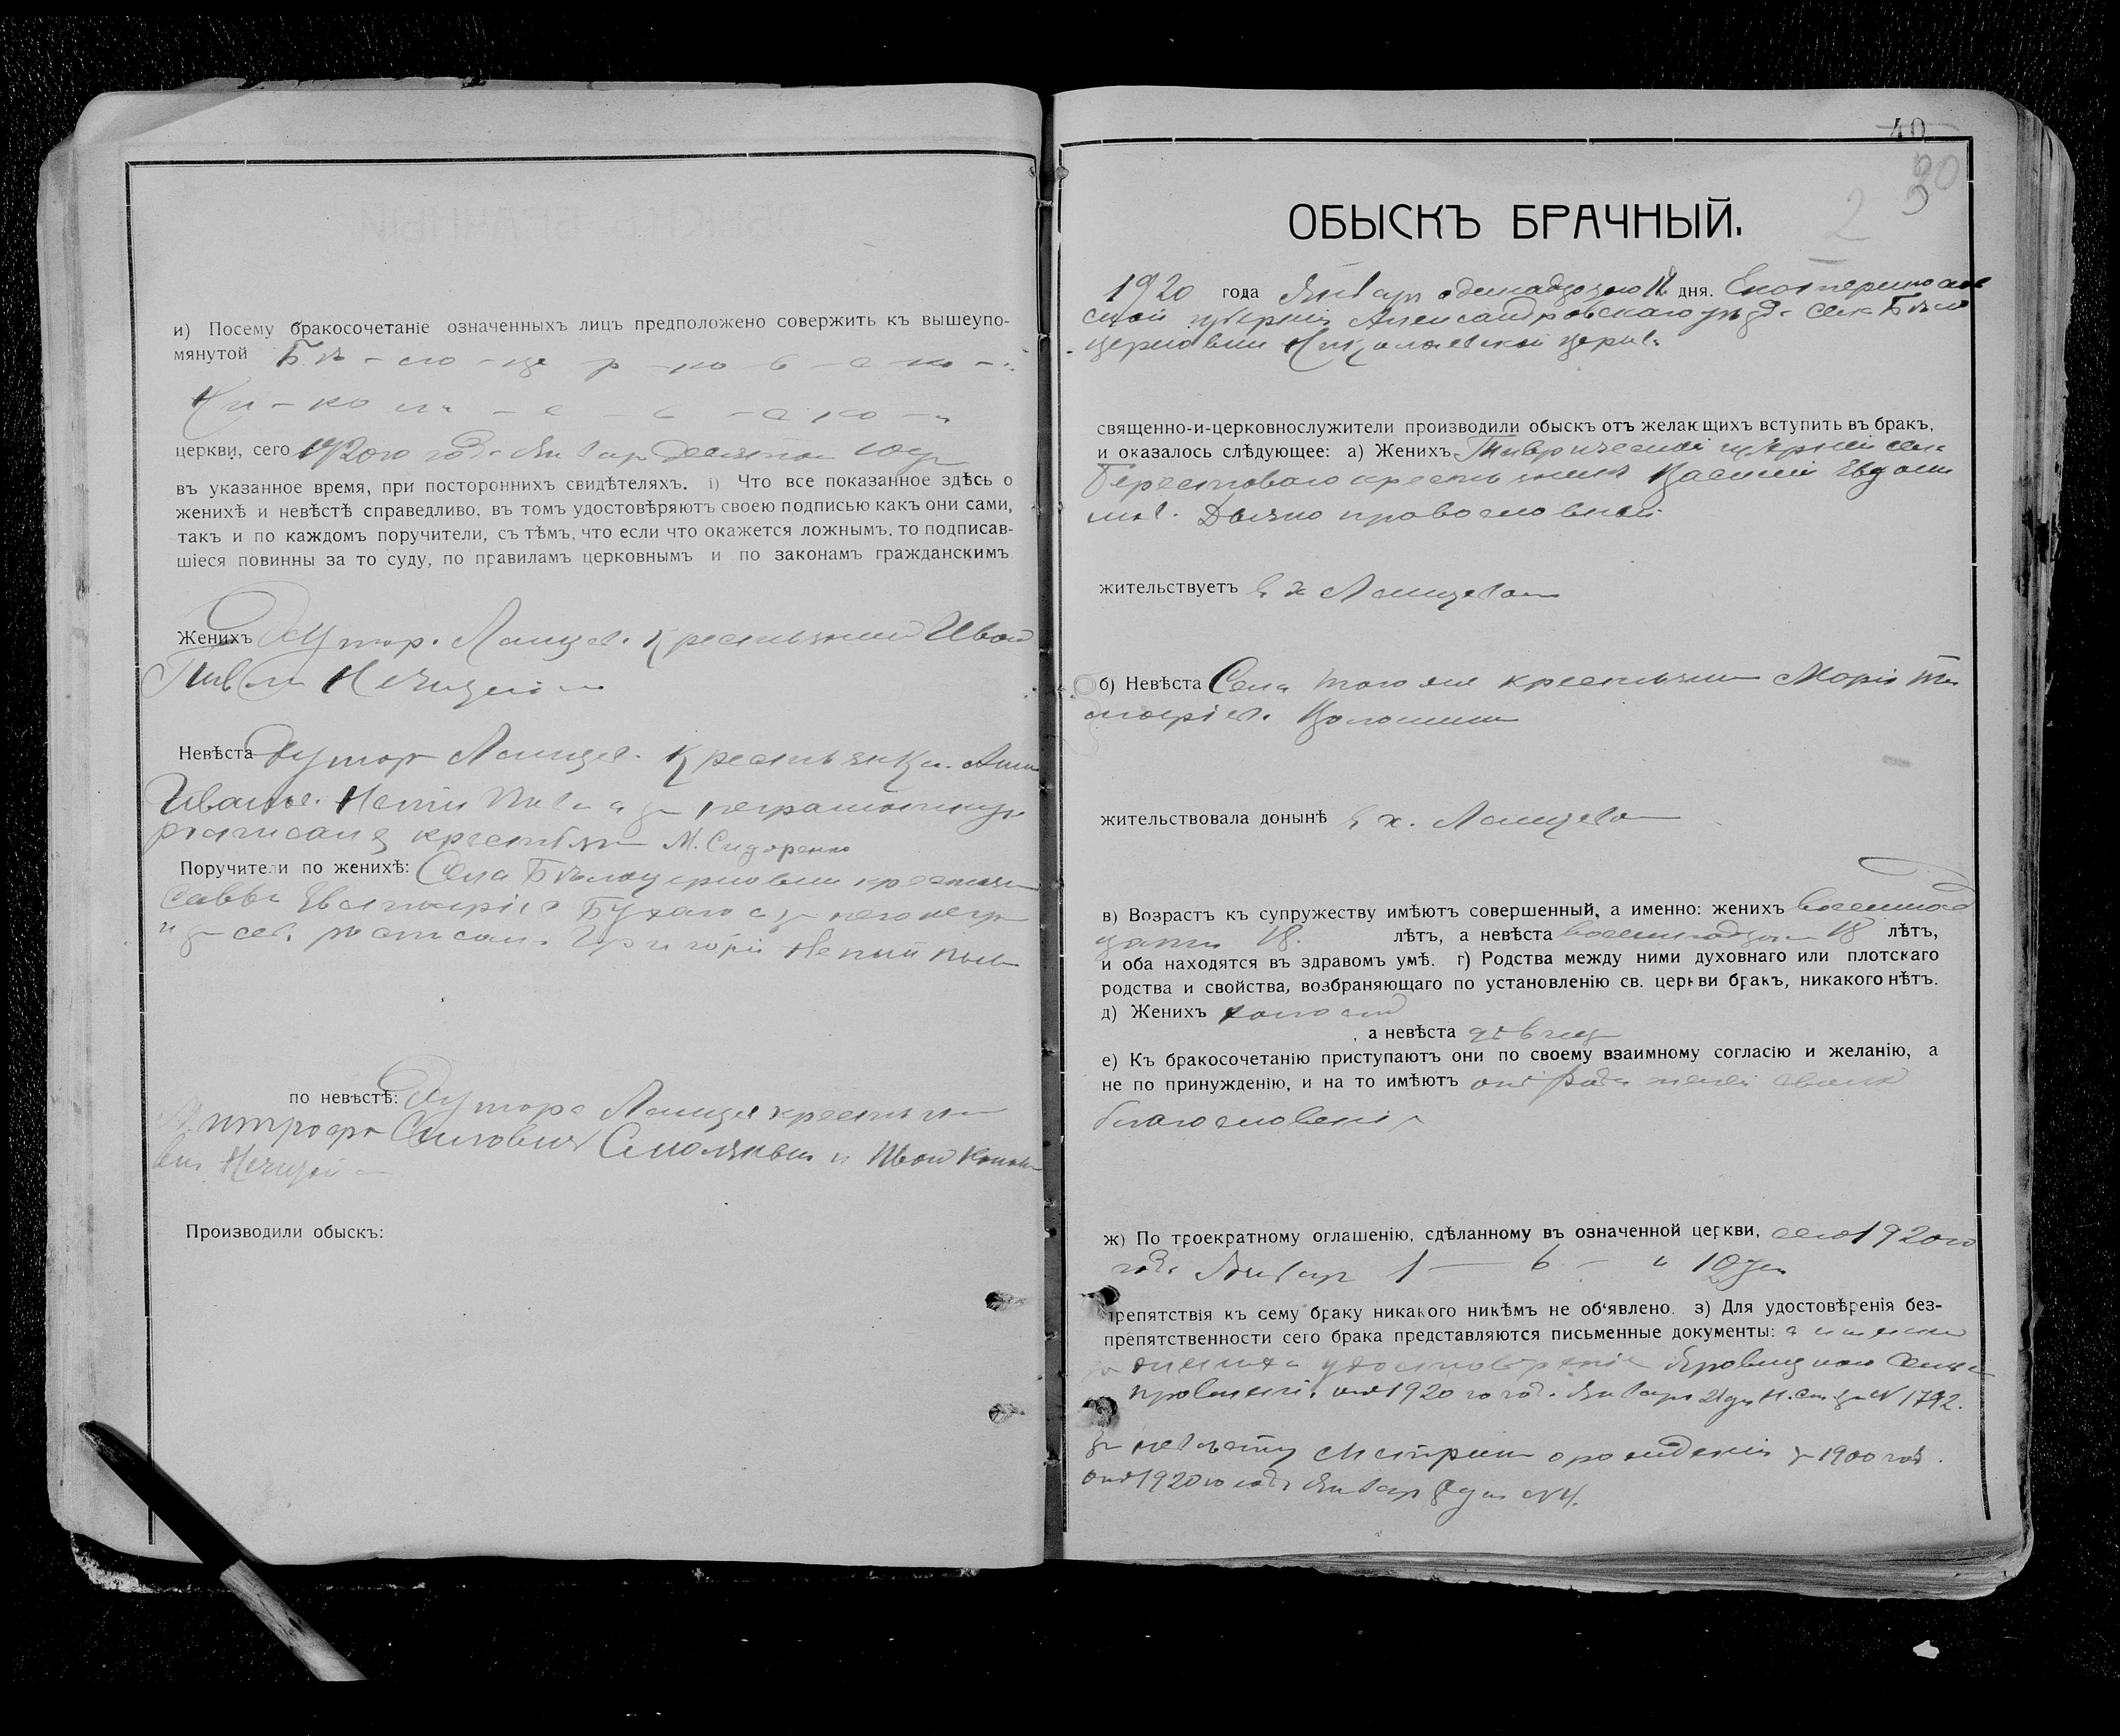 и) Посему бракосочетаніе означенныхъ лицъ предположено совержить къ вышеупо-
мянутой Бѣ - ло - це - р - ко - в - с - ко - й
Ни - ко - ла - е - в - с - ко - й
церкви, сего 1920го года Января десятаго 10 дня
въ указанное время, при постороннихъ свидѣтеляхъ. і) Что все показанное здѣсь о
женихѣ и невѣстѣ справедливо, въ томъ удостовѣряютъ своею подписью какъ они сами,
такъ и по каждомъ поручители, съ тѣмъ, что если что окажется ложнымъ, то подписав-
шіеся повинны за то суду, по правиламъ церковнымъ и по законамъ гражданскимъ
Женихъ Хутор. Ланцев. крестьянин Иван
Невѣста Хутор Ланцев. крестьянка Анна
Иванов. а за неграмотную
росписался крестьянин М. Сидоренко
Поручители по женихѣ: Села Бѣлоцерковки крестьян
Савва Евстафіев
и за себя росписался Григорій
по невѣстѣ: Хутора Ланцев крестьяни
Митрофан и Иван
Производили обыскъ:
40
30
2
ОБЫСКЪ БРАЧНЫЙ.
1920 года Января одинадцатаго 11 дня. Екатеринослав
ской губерніи Александровскаго уѣзд. села Бѣло
церковки Николаевской церкв.
священно-и-церковнослужители производили обыскъ отъ желающихъ вступить въ бракъ,
и оказалось слѣдующее: а) Женихъ Таврической губерніи села
Берестоваго крестьянин Василий Евдоки
мов. православный
жительствуетъ в х Ланцевом
б) Невѣста Села того же крестьянка Марія Ти
мофіев.
жительствовала донынѣ в х. Ланцевом
в) Возрастъ къ супружеству имѣютъ совершенный, а именно: женихъ восемнад
цати 18. лѣтъ, а невѣста восемнадцати 18 лѣтъ,
и оба находятся въ здравомъ умѣ. г) Родства между ними духовнаго или плотскаго
родства и свойства, возбраняющаго по установленію св. церкви бракъ, никакого нѣтъ.
д) Женихъ холост
, а невѣста дѣвица
е) Къ бракосочетанію приступаютъ они по своему взаимному согласію и желанію, а
не по принужденію, и на то имѣютъ от родителей своих
благословеніе
ж) По троекратному оглашенію, сдѣланному въ означенной церкви, сего 1920го
года Января 1 — 6 - и 10 дня
препятствія къ сему браку никакого никѣмъ не об‘явлено. з) Для удостовѣренія без-
препятственности сего брака представляются письменные документы: а именно
жениха удостовѣреніе
правленія от 1920го год. Января 21 дня Н. ст. за № 1792.
за невѣсту Метрика о рожденіи за 1900 год.
от 1920го года Января 8 дня № 4.